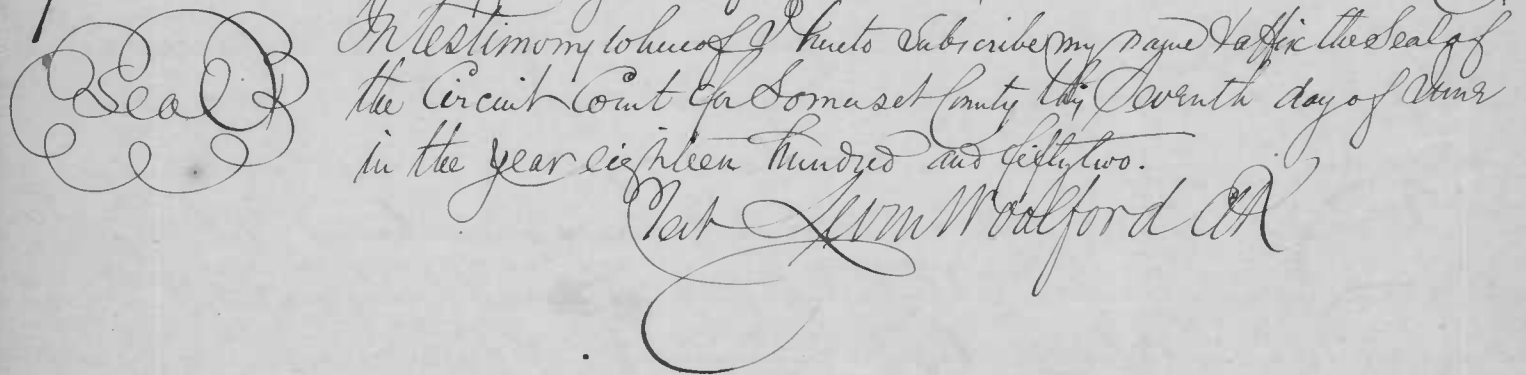 Seal
In testimony whereof I hereto subscribe my name & affix the Seal of
the Circuit Court for Somerset County this Seventh day of June
in the year eighteen hundred and fifty two.
Test Levin Woolford Clk